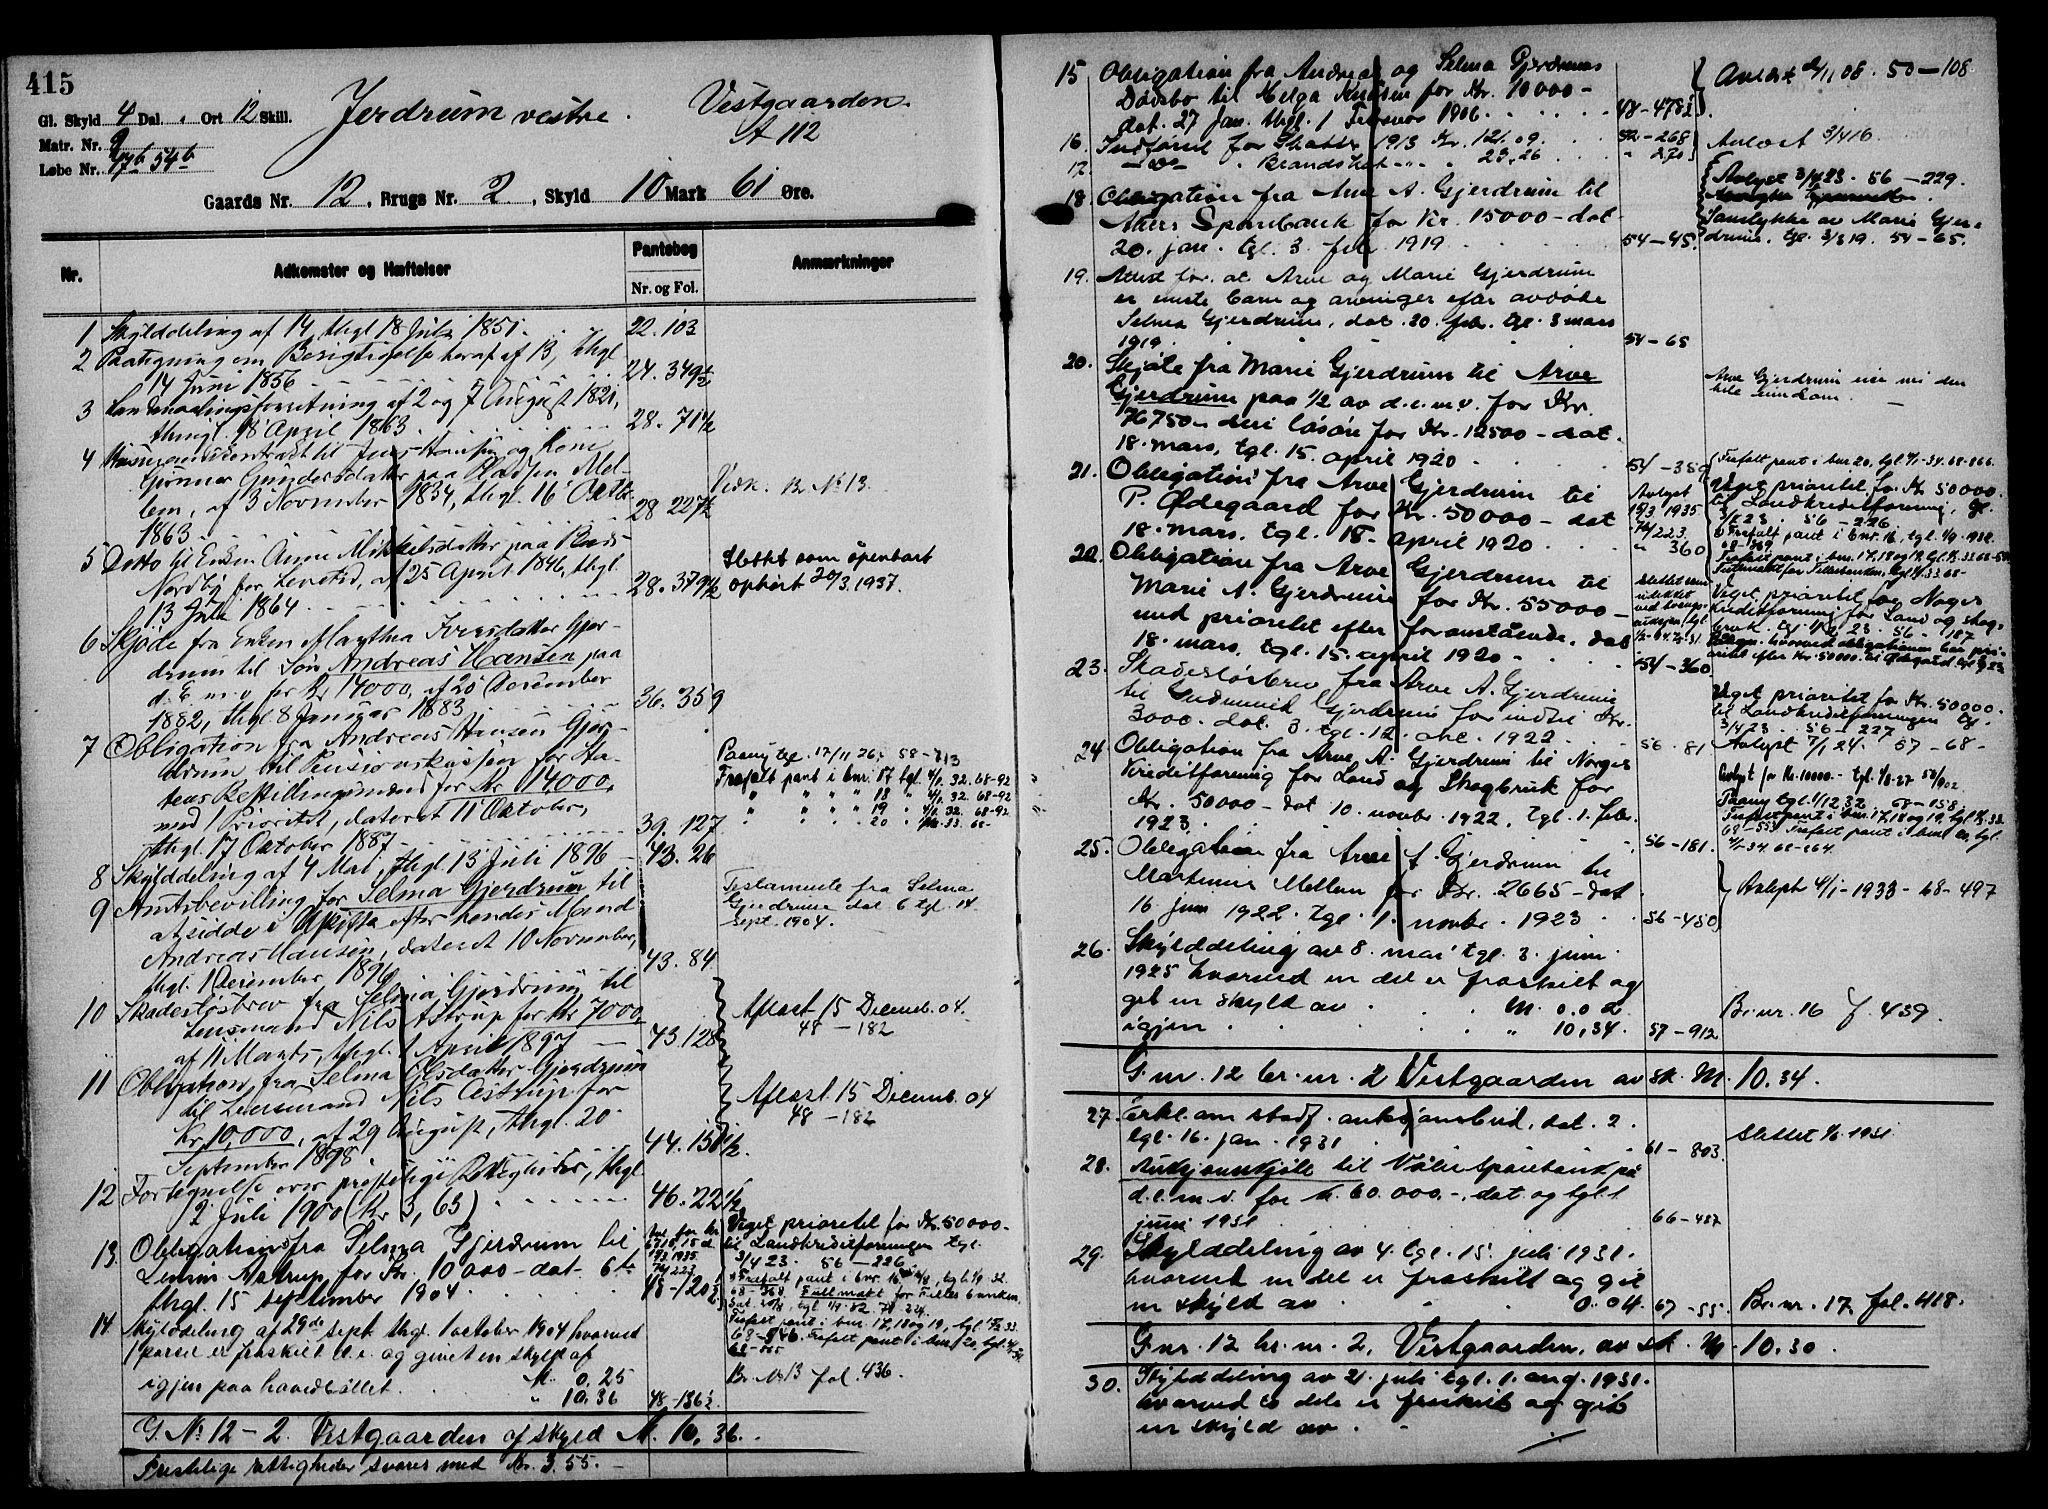 415
Gl. Skyld 4 Dal. " Ort 12 Skill.
Matr. Nr. 9
Løbe Nr. 17b 54b
Jerdrum vestre.
Vestgaarden.
A 112
Gaards Nr. 12, Brugs Nr. 2, Skyld 10 Mark 61 Øre.
Nr. Adkomster og Hæftelser Pantebog Nr. og Fol. Anmærkninger
1 Skylddeling af 14, thgl 18 Juli 1851. 22. 103
2 Paategning om Berigtigelse heraf af 13, thgl
14 Juni 1856 24. 349½
3 af 2 og 7 August 1821,
thingl. 18 April 1863. 28. 71½
4 Huusmandscontract til Jens Hansen og Kone
Gundersdatter paa Pladsen Mel-
lem, af 3 November 1834, thgl. 16 Octb.
1863 28 227½ Vedk. Br. No 13.
5 Ditto til Enken Anne Mikkelsdatter paa Plads.
Nordby for Levetid, af 25 April 1846, thgl.
13 Juli 1864 28. 379½
Slettet som åpenbart
ophørt 20/3.1937.
6 Skjøde fra Enken Marthea Iversdatter Gjer-
drum til Søn Andreas Hansen paa
d. E. m. v. for Kr 14000, af 20 December
1882, thgl 8 Januar 1883 36. 359
7 Obligation fra Andreas Hansen Gjer-
drum til Pensionskassen for Sta-
tens Bestillingsmænd for Kr 14000,
med 1 Prioritet, dateret 11 Oktober,
thgl. 17 Oktober 1887 39. 127
Paany tgl. 17/11 26. 58-713
Frafalt pant i bnr. 17 tgl. 4/1. 32. 68-92
" " " " 18 " 4/1. 32. 68-92
" " " " 19 " 4/1. 32. 68-92
" " " " 20 33. 68-
8 Skylddeling af 4 Mai, thgl. 13 Juli 1896 43. 26
9 Amtsbevilling for Selma Gjerdrum til
at sidde i Uskifte efter hendes Mand
Andreas Hansen, dateret 10 November,
thgl. 1 December 1896 43. 84
Testamente fra Selma
Gjerdrum dat 6 tgl. 14
Sept. 1904.
10 Skadesløsbrev fra Selma Gjerdrum til
Lensmand Nils Astrup for Kr 7000,
af 11 Marts, thgl. 1 April 1897 43. 128
Aflæst 15 Decemb. 04.
48 - 182
11 Obligation fra Selma Olsdatter Gjerdrum
til Lensmand Nils Astrup for
Kr 10,000, af 29 August, thgl. 20
September 1898 44. 158½.
Aflæst 15 Decemb. 04
48 - 182
12 Fortegnelse over præstelige Rettigheder, thgl
2 Juli 1900 (Kr 3,63) 46. 22½
13. Obligation fra Selma Gjerdrum til
Astrup for Kr. 10000 - dat. 6te
thgl. 15 september 1904. 48-120½
Veget prioritet for Kr. 50000-
til Landkreditforeningen tgl.
3/4 23. 56-226.
Frafalt pant i bnr. 16
Fullmakt for Felles banken,
Frafalt pant i bnr. 17, 18 og 19, tgl
Frafalt pant i bnr. 20, tgl.
14 Skylddeling af 29de sept thgl. 1 october 1904 hvorved
1 parsel er fraskilt d. e. og givet en skyld af
M. 0,25
igjen paa hovedbøllet. " 10,36 48-136½
Br. Nr 13 fol. 436.
G. No 12 - 2. Vestgaarden af skyld M. 10, 36.
Præstelige rettigheder svares med Kr. 3.55.
15 Obligation fra Andreas og Selma Gjerdrums
Dødsbo til Helga Knudsen for Kr. 10000-
dat. 27 jan. thgl. 1 Februar 1906. 48-478½
Avlæst 11 08. 50-108
16. Utdforsel for Skatter 1913 Kr. 121.09. 52-268
17. -do- " Brandskat " " 23.26 " 270
Avlæst 3/4 16.
18 Obligation fra Arve A. Gjerdrum til
Akers Sparebank for Kr. 15000- dat
20. jan. tgl. 3. feb 1919 54-45.
Avlyst 3/4 23. 56-229.
Samtykke av Marie Gjer-
drum, tgl. 3/3 19. 54-65.
19. Attest for at Arve og Marie Gjerdrum
er eneste barn og arvinger efter avdøde
Selma Gjerdrum, dat. 20. feb. tgl. 3 mars
1919. 54-65
20. Skjøte fra Marie Gjerdrum til Arve
Gjerdrum paa ½ av d. e. m. v. for Kr.
76750- deri løsøre for Kr. 12500- dat.
18. mars, tgl. 15. april 1920 54-359
Arve Gjerdrum eier nu den
hele eiendom.
21. Obligation fra Arve Gjerdrum til
P. Ødegaard for Kr. 50000- dat
18. mars, tgl. 15. april 1920 " 360
Avlyst
19/3 1935
74/223.
Frafalt pant i bnr 20, tgl. 4/1-34. 68-866.
Veget prioritet for Kr 50000.
til Landkreditforening, tgl.
3/4 23. 56-226
Frafalt pant i bnr. 16, tgl. 1/9-1932.
22. Obligation fra Arve Gjerdrum til
Marie A. Gjerdrum for Kr. 55000-
med prioritet efter foranstående, dat
18. mars, tgl. 15. april 1920 54-360
Veget prioritet for Norges
Kreditforening for Land og skog-
bruk. 23. 56-187
23. Skadesløsbrev fra Arve A. Gjerdrum
til Gudmund Gjerdrum for indtil Kr.
3000. dat. 3. tgl. 12. okt. 1922 56. 81
Veget prioritet for Kr. 50000-
til Landkreditforeningen tgl.
3/4 23. 56-227
Avlyst 7/1 24. 57-68-
24. Obligation fra Arve A. Gjerdrum til Norges
Kreditforening for Land og Skogbruk for
Kr. 50000- dat 10. novbr. 1922, tgl. 1. febr.
1923. 56-181.
Avlyst for Kr. 10000-
Paany tgl. 1/12 32
25. Obligation fra Arve A. Gjerdrum til
Martinus Mellem for Kr. 2665- dat
16 juni 1922. tgl. 1. novbr. 1923 56-450
Avlyst 4/1-1933-68-497
26. Skylddeling av 8. mai tgl. 3. juni
1925 hvorved en del er fraskilt og
git en skyld av M. 0.02
igjen " 10.34. 57-912
Br. nr. 16 f. 439.
G. nr. 12 br. nr. 2 Vestgaarden av sk. M. 10.34.
27. Erkl. om stadf. auksjonsbud, dat. 2.
tgl. 16. jan. 1931 61-803.
Slettet 1/6 1931
28. Auksjonsskjøte til Sparebank på
d. e. m. v. for kr. 60.000.-, dat og tgl 1
juni 1931 66-487
29. Skylddeling av 4. tgl. 15. juli 1931.
hvorved en del er fraskilt og git
en skyld av 0.04. 67-55.
Br. nr. 17 fol. 418.
G. nr. 12 br. nr. 2, Vestgaarden, av sk. M 10.30.
30. Skylddeling av 21. juli tgl. 1. aug. 1931.
hvorved 3 dele er fraskilt og git
en skyld av